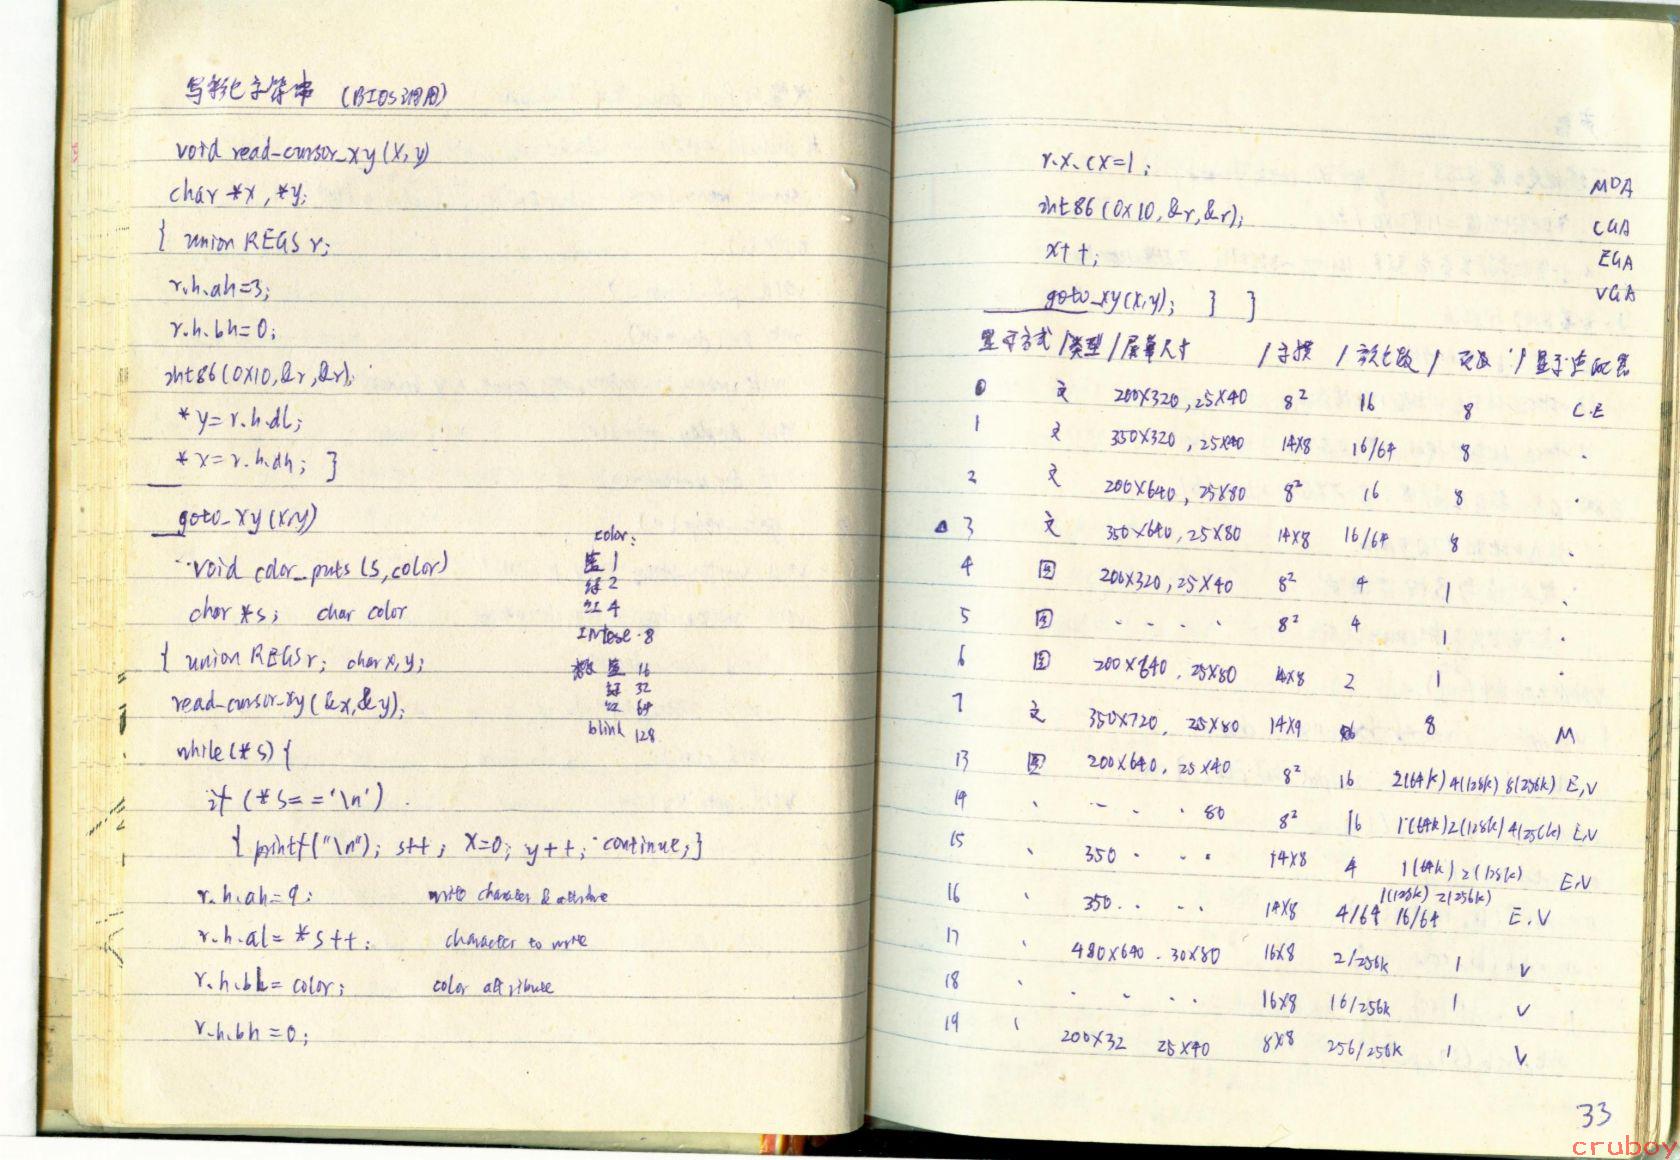 写彩色字符串 (BIOS调用)
void read_cursor_xy(x,y)
char *x, *y;
{ union REGS r;
r.h.ah=3;
r.h.bh=0;
int86(0X10,&r,&r);
*y=r.h.dl;
*x=r.h.dh; }
goto_xy(x,y)
void color_puts(s,color)
char *s; char color
{ union REGS r; char x,y;
read_cursor_xy(&x,&y);
while(*s){
if (*s=='\n')
{ printf("\n"); s++; x=0; y++; continue;}
r.h.ah=9; write character & attribute
r.h.al=*s++; character to write
r.h.bl=color; color attribute
r.h.bh=0;
color:
蓝 1
绿 2
红 4
Intese 8
蓝 16
绿 32
红 64
blink 128
r.x.cx=1;
int86(0X10,&r,&r);
x++;
goto_xy(x,y); } }
MDA
CGA
EGA
VGA
显示方式/类型/屏幕尺寸 /字模 /颜色数/ 页数 /显示适配器
0 文 200X320,25X40 8² 16 8 C.E
1 文 350X320,25X40 14X8 16/64 8 .
2 文 200X640,25X80 8² 16 8 .
3 文 350X640,25X80 14X8 16/64 8 .
4 图 200X320,25X40 8² 4 1 .
5 图 - . . . 8² 4 1 .
6 图 200X640,25X80 14X8 2 1 .
7 文 350X720,25X80 14X9 8 M
13 图 200X640,25X40 8² 16 2(64k) 4(128k) 8(256k) E,V
14 . - - . 80 8² 16 1(64k) 2(128k) 4(256k) E,V
15 . 350 . . . 14X8 4 1(64k) 2(128k) E,V
16 . 350 . . . . 14X8 4/64 16/64 1(128k) 2(256k) E.V
17 . 480X640 . 30X80 16X8 2/256k 1 V
18 . . - . . 16X8 16/256k 1 V
19 . 200X32 25X40 8X8 256/256k 1 V
33
cruboy